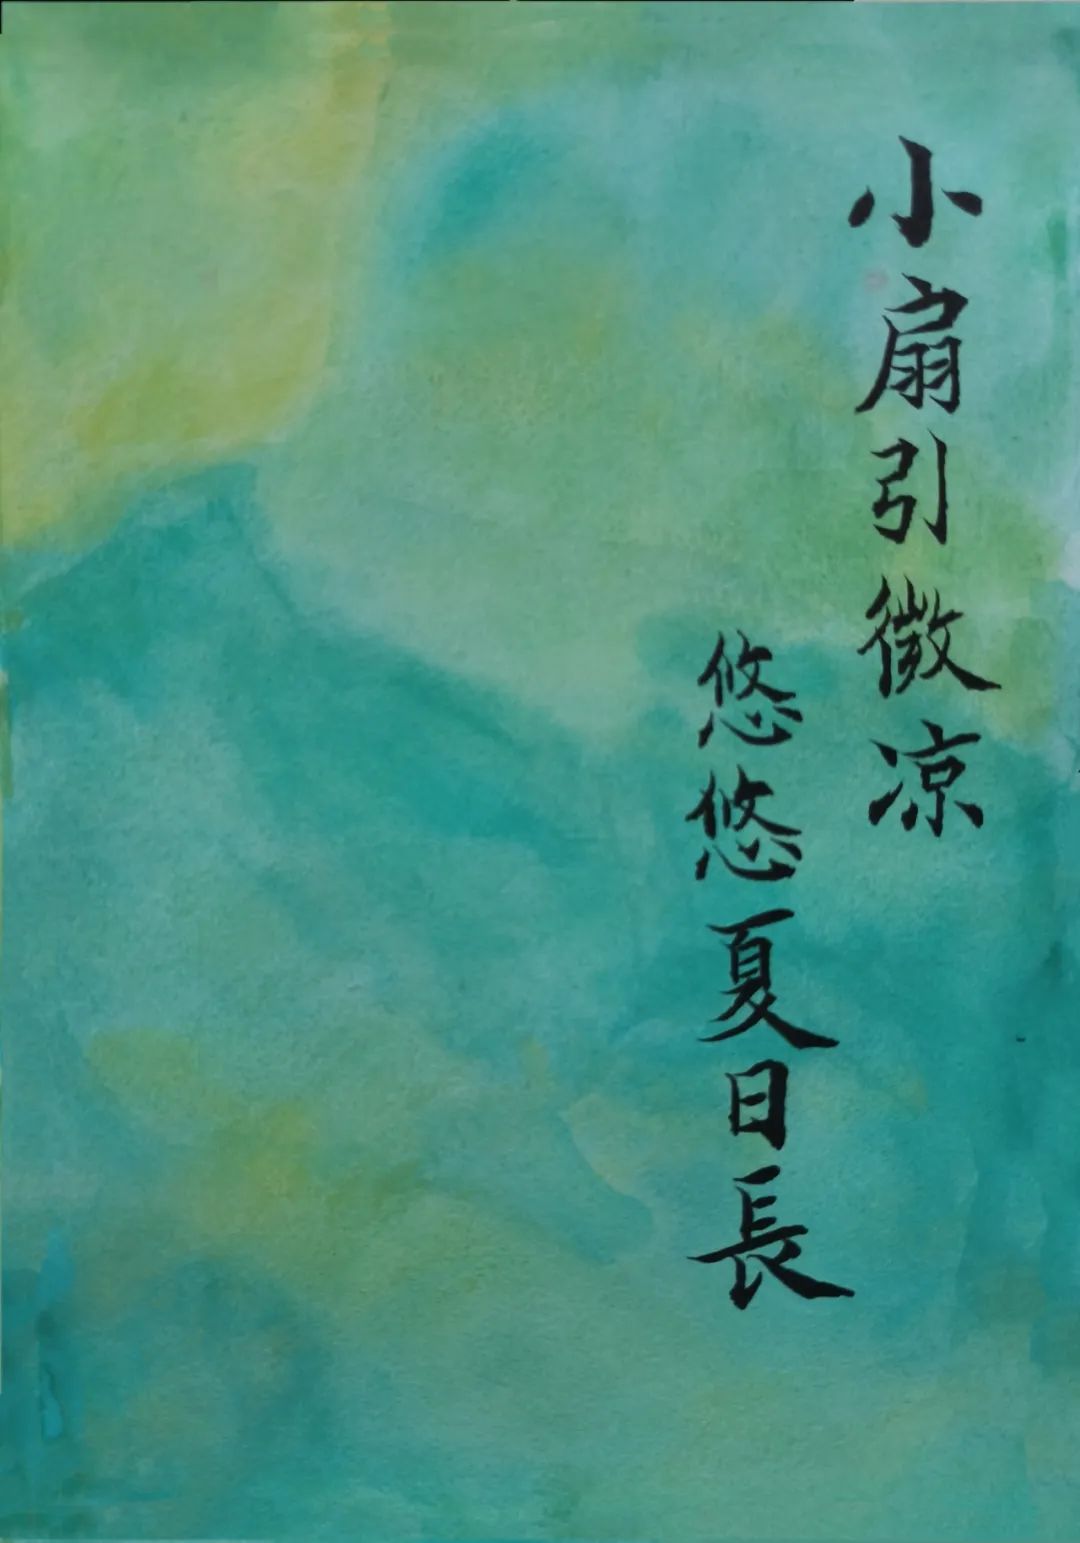 小扇引微凉
悠悠夏日長